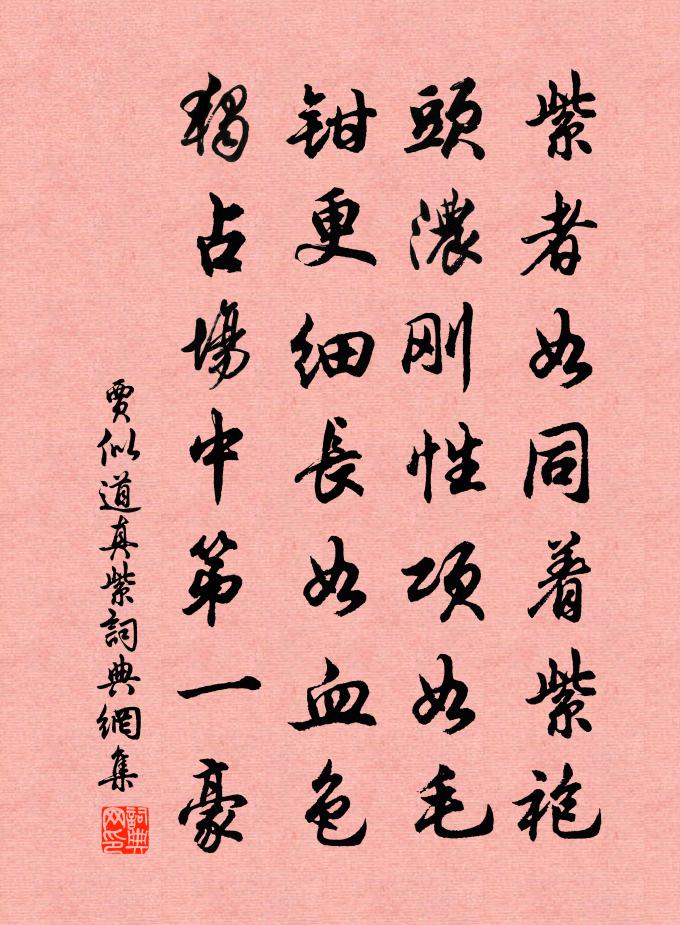 紫者如同着紫袍
頭濃刚性项如毛
钳更细長如血色
独占場中第一豪
賈似道真紫詞典網集
詞典网印